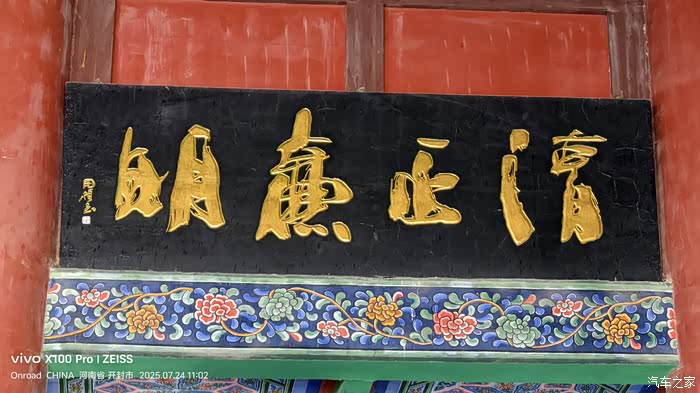 清正廉明
vivo X100 Pro | ZEISS
Onroad CHINA 河南省 开封市 2025.07.24 11:02
汽车之家